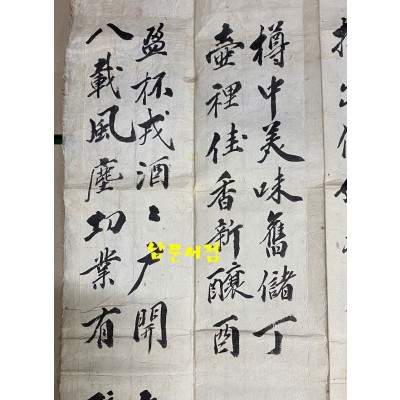 樽中美味舊儲丁
壺裡佳香新釀酉
盈杯戎酒〻户開
八載風塵功業有
남문서점